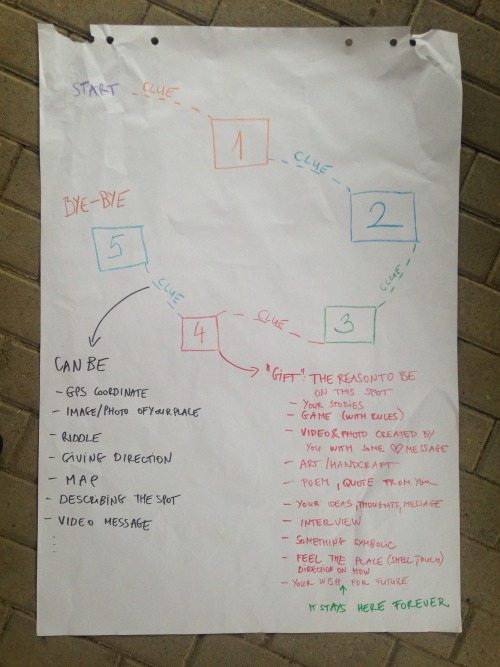 START
CLUE
1
CLUE
2
CLUE
3
CLUE
4
CLUE
5
BYE-BYE
CAN BE
- GPS COORDINATE
- IMAGE/PHOTO OF YOUR PLACE
- RIDDLE
- GIVING DIRECTION
- MAP
- DESCRIBING THE SPOT
- VIDEO MESSAGE
:
"GIFT": THE REASON TO BE
ON THIS SPOT
- YOUR STORIES
- GAME (WITH RULES)
- VIDEO & PHOTO CREATED BY
YOU WITH SOME ♡ MESSAGE
- ART/HANDCRAFT
- POEM, QUOTE FROM YOU
- YOUR IDEAS, THOUGHTS, MESSAGE
- INTERVIEW
- SOMETHING SYMBOLIC
- FEEL THE PLACE (SMELL, TOUCH)
DIRECTION ON HOW
- YOUR WISH FOR FUTURE
IT STAYS HERE FOREVER